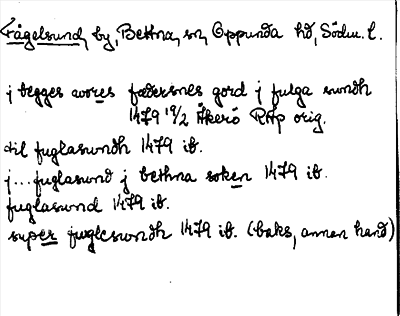 Fågelsund, by, Bettna, sn, Oppunda hd, Södm. l.
j begges wores fædersnes gord j fulga sundh
1479 19/2 Åkerö RAp orig.
til fuglasundh 1479 ib.
j...fuglasund j bethna soken 1479 ib.
fuglasund 1479 ib.
super fuglesundh 1479 ib. (baks, annan hand)